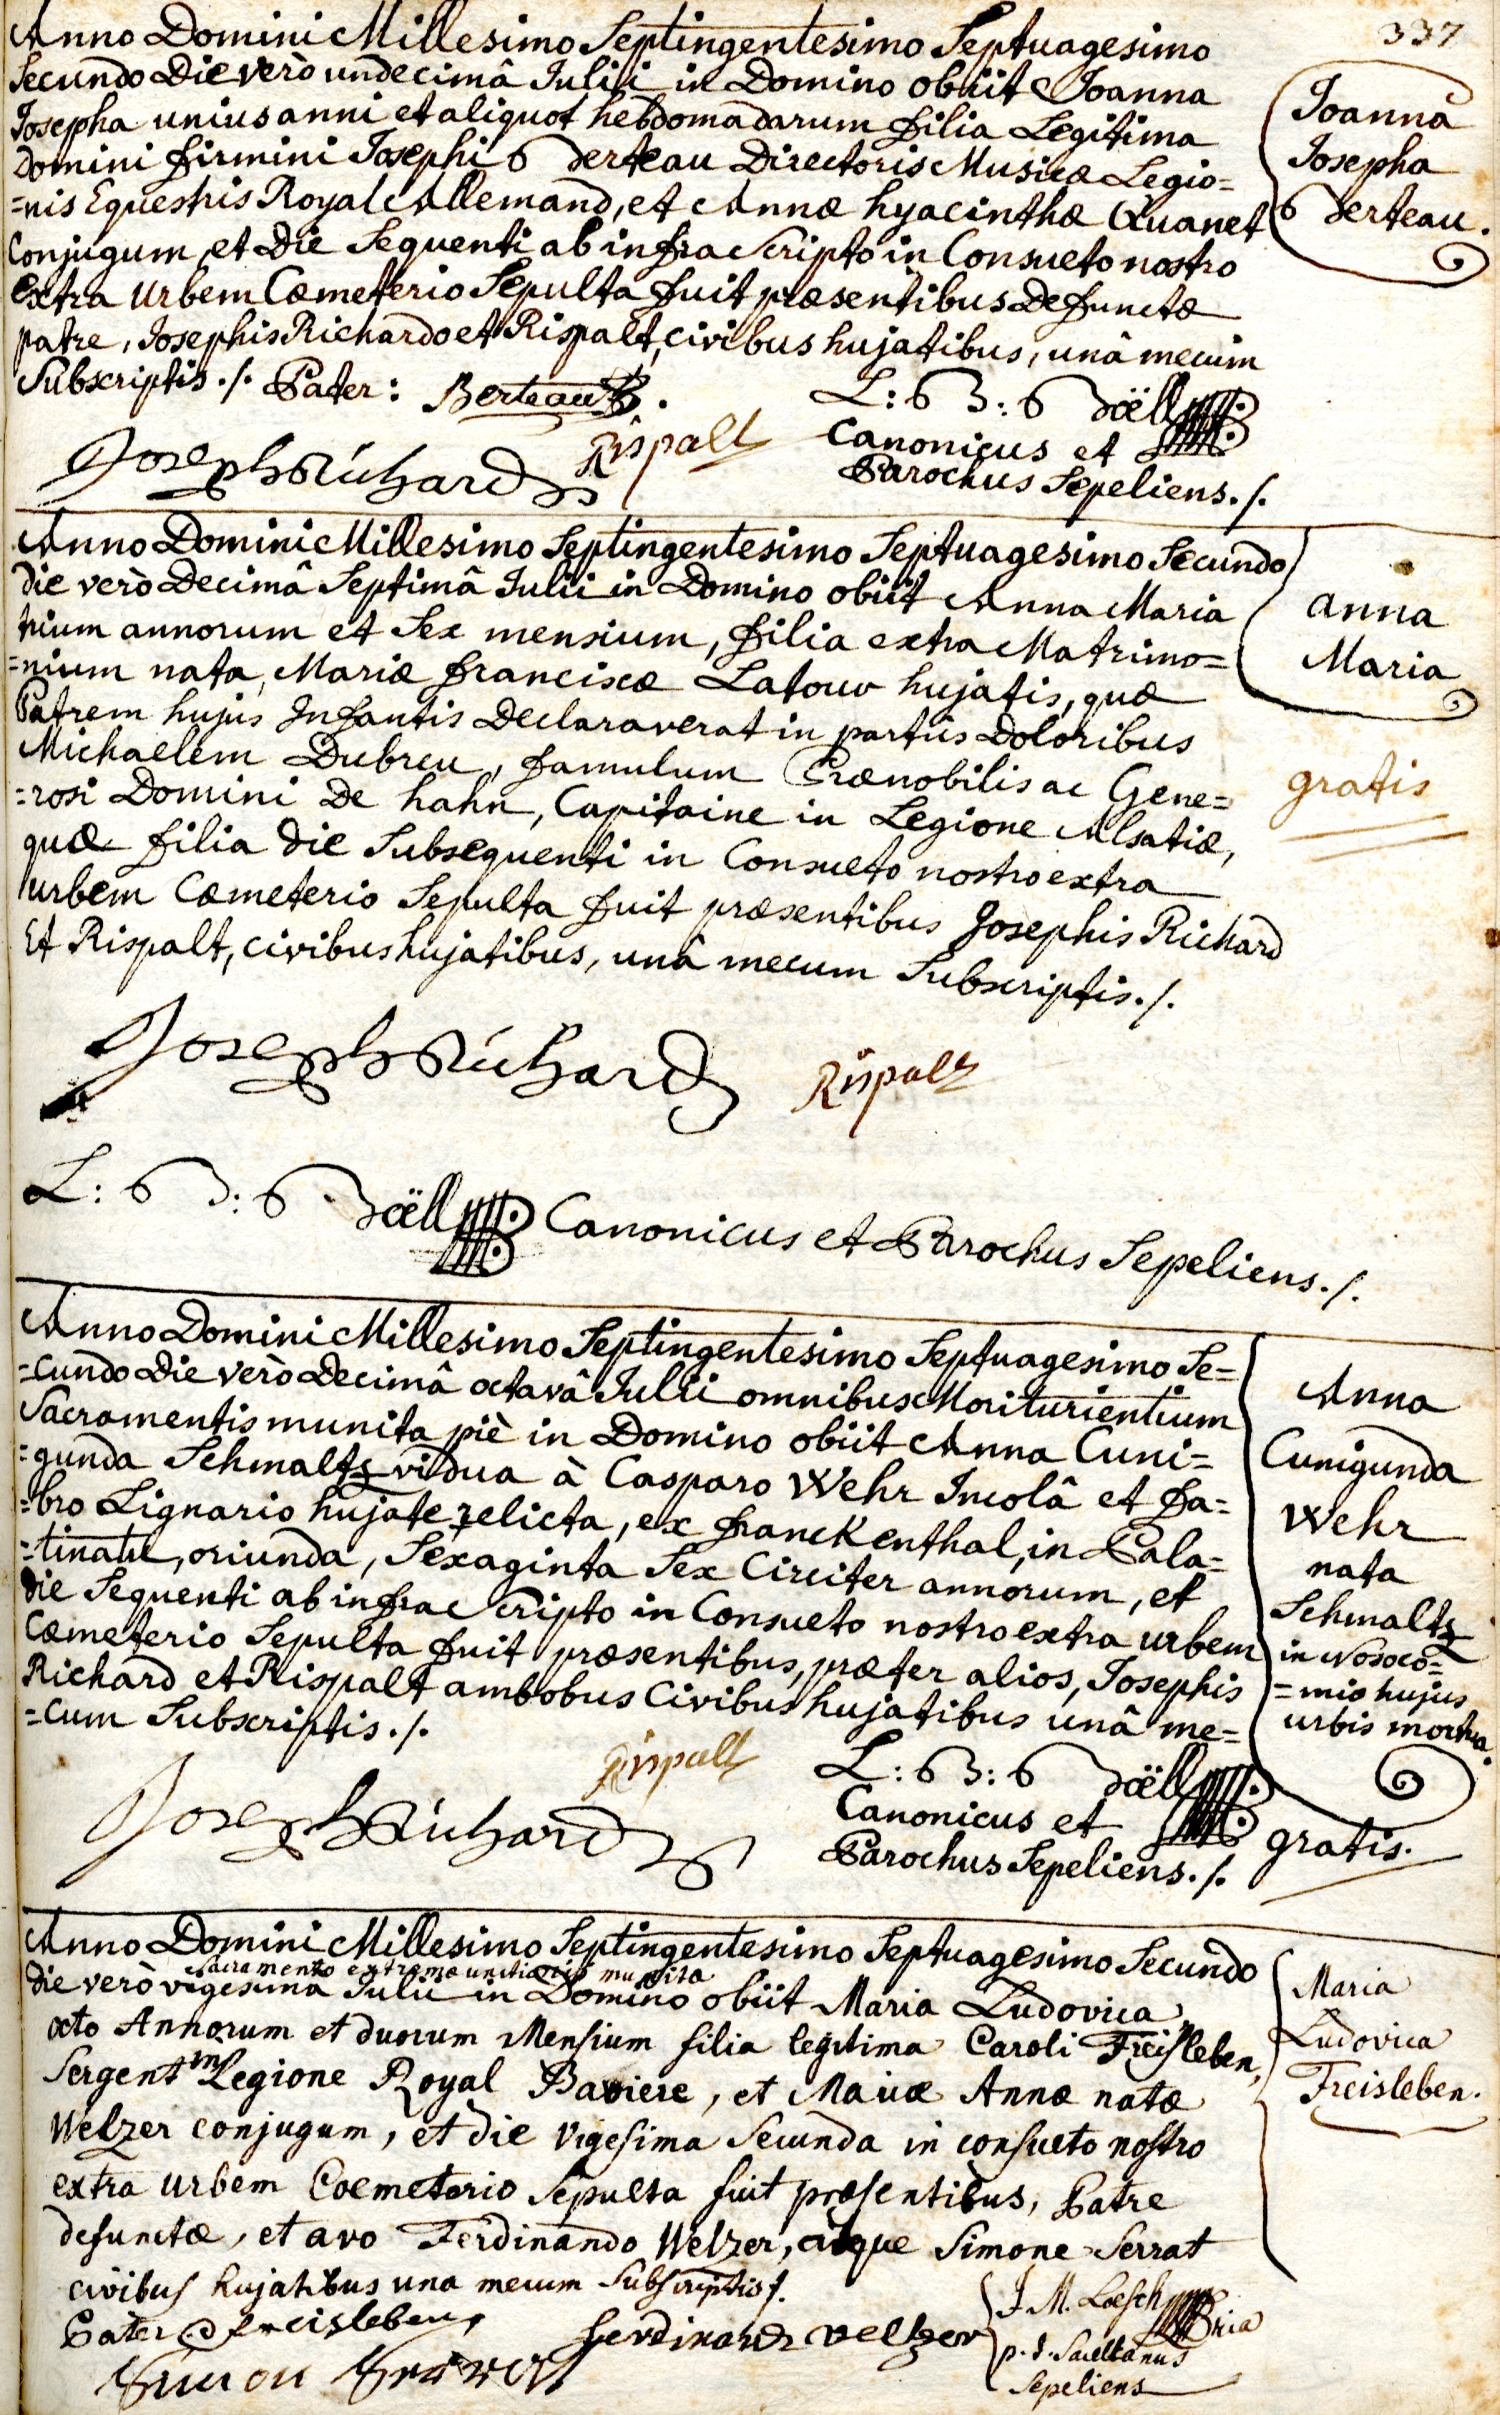 337
Anno Domini Millesimo Septingentesimo Septuagesimo
Secundo die verò undecimâ Julii in Domino obiit Joanna
Josepha unius anni et aliquot hebdomadarum filia Legitima
Domini firmini Josephi Berteau Directoris Musicæ Legio=
=nis Equestris Royal Allemand, et Annæ hyacinthæ Quanet
Conjugum, et die Sequenti ab infra Scripto in Consueto nostro
extra Urbem Cœmeterio Sepulta fuit præsentibus Defunctæ
patre, Josephis Richardo et Rispalt, civibus hujatibus, unâ mecum
Subscriptis ./. Pater: Berteau.
Joanna
Josepha
Berteau.
Joseph Richard
Rispalt
L: B: B
Canonicus et
Parochus Sepeliens ./.
Anno Domini Millesimo Septingentesimo Septuagesimo Secundo
die verò Decimâ Septimâ Julii in Domino obiit Anna Maria
trium annorum et Sex mensium, filia extra Matrimo=
=nium nata, Mariæ franciscæ Latour hujatis, quæ
Patrem hujus Infantis Declaraverat in partûs Doloribus
Michaelem Dubreu, famulum Prænobilis ac Gene=
=rosi Domini De hahn, Capitaine in Legione Alsatiæ,
quæ filia die Subsequenti in Consueto nostro extra
urbem Cœmeterio Sepulta fuit præsentibus Josephis Richard
Et Rispalt, civibus hujatibus, unâ mecum Subscriptis ./.
anna
Maria
gratis
Joseph Richard
Rispalt
L: B: B Canonicus et Parochus Sepeliens ./.
Anno Domini Millesimo Septingentesimo Septuagesimo Se=
=cundo die verò Decimâ octavâ Julii omnibus Moriturientium
Sacramentis munita piè in Domino obiit Anna Cuni=
=gunda Schmaltz vidua à Casparo Wehr Incolâ et fa=
=bro Lignario hujate relicta, ex franckenthal, in Pala=
=tinatu, oriunda, Sexaginta Sex Circiter annorum, et
die Sequenti ab infra Scripto in Consueto nostro extra urbem
Cœmeterio Sepulta fuit præsentibus, præter alios, Josephis
Richard et Rispalt ambobus Civibus hujatibus unâ me=
=cum Subscriptis ./.
Anna
Cunigunda
Wehr
nata
Schmaltz
in Nosoco=
=mio hujus
urbis mortua.
gratis.
Joseph Richard
Rispalt
L: B: B
Canonicus et
Parochus Sepeliens ./.
Anno Domini Millesimo Septingentesimo Septuagesimo Secundo
Sacramento extremæ unctionis munita
die verò vigesima Julii in Domino obiit Maria Ludovica
octo Annorum et duorum Mensium filia legitima Caroli Freisleben,
Sergent in Legione Royal Baviere, et Mariæ Annæ natæ
Welzer conjugum, et die vigesima Secunda in consueto nostro
extra urbem Coemeterio Sepulta fuit præsentibus, Patre
defunctæ, et avo Ferdinando Welzer, atque Simone Serrat
civibus hujatibus una mecum Subscriptis ./.
Maria
Ludovica
Freisleben.
Pater Freisleben
Ferdinand Velzer
Simon
J M. Loesch
Sacellanus
Sepeliens